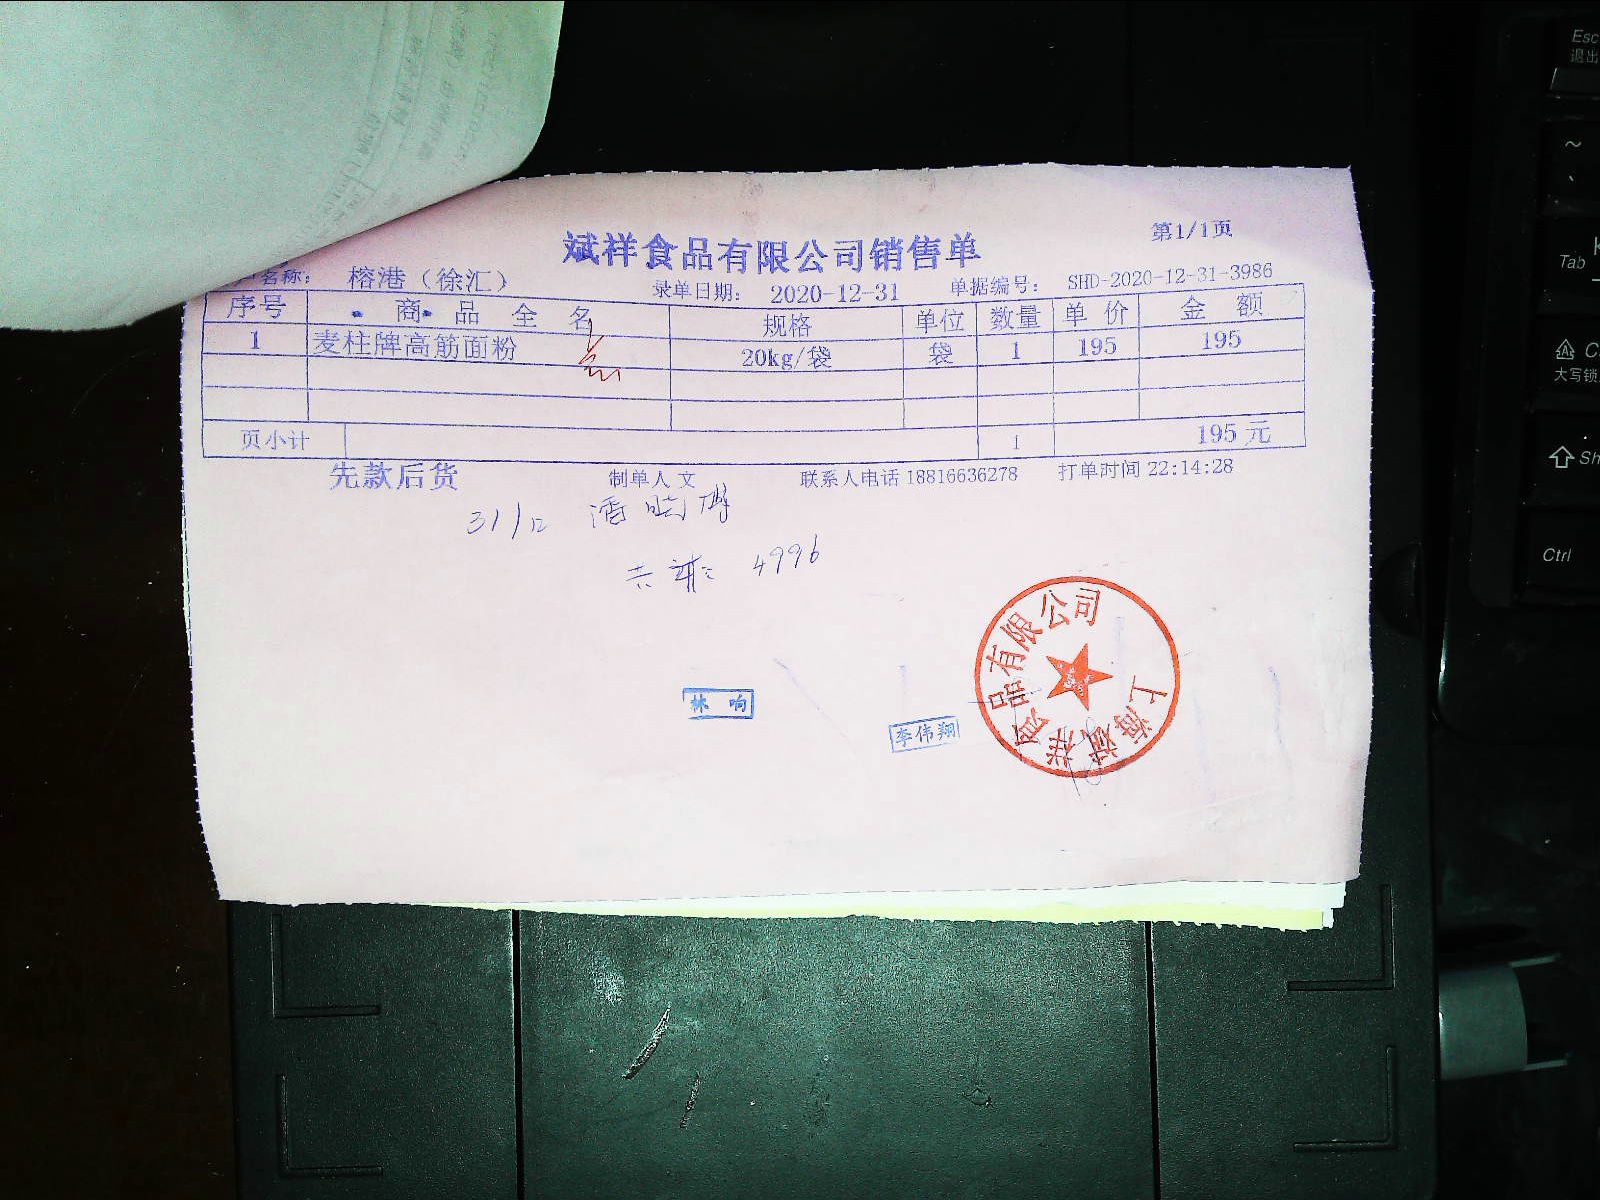 斌祥食品有限公司销售单
第1/1页
名称： 榕港（徐汇） 录单日期： 2020-12-31 单据编号： SHD-2020-12-31-3986
序号 商品全名 规格 单位 数量 单价 金额
1 麦柱牌高筋面粉 20kg/袋 袋 1 195 195
页小计 1 195元
先款后货 制单人 文 联系人电话 18816636278 打单时间 22:14:28
4996
林响
李伟翔
上海斌祥食品有限公司
Esc
退出
~
Tab
大写锁
Sh
Ctrl